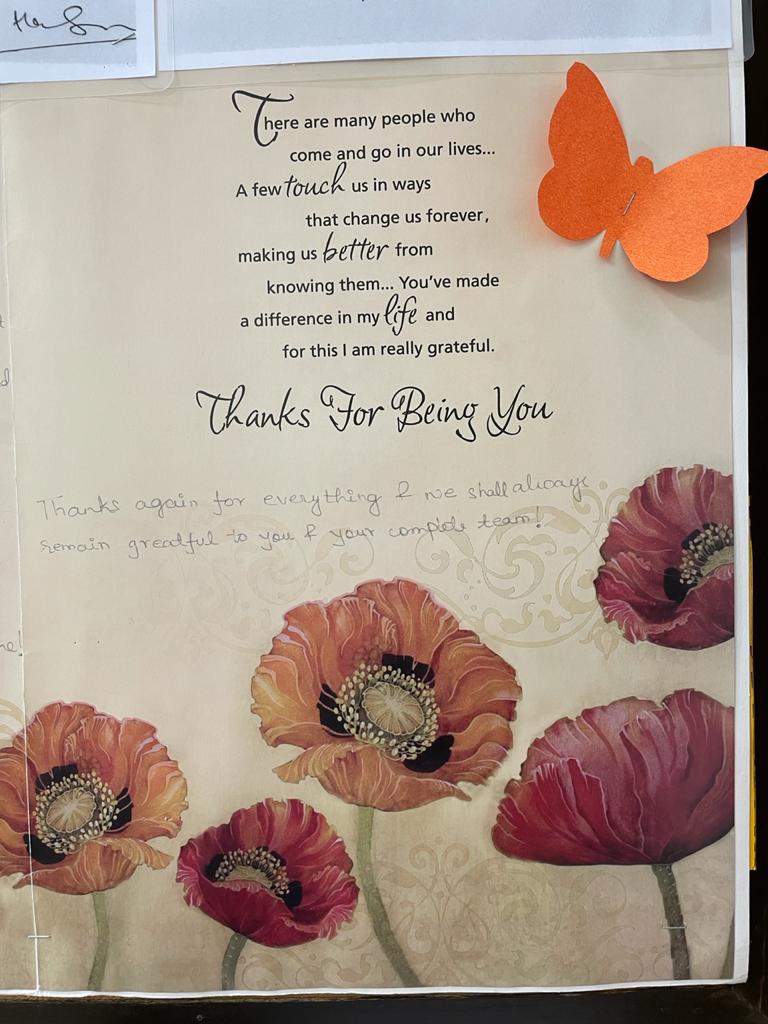 There are many people who
come and go in our lives...
A few touch us in ways
that change us forever,
making us better from
knowing them... You've made
a difference in my life and
for this I am really grateful.
Thanks For Being You
Thanks again for everything & we shall always
remain greatful to you & your complete team!